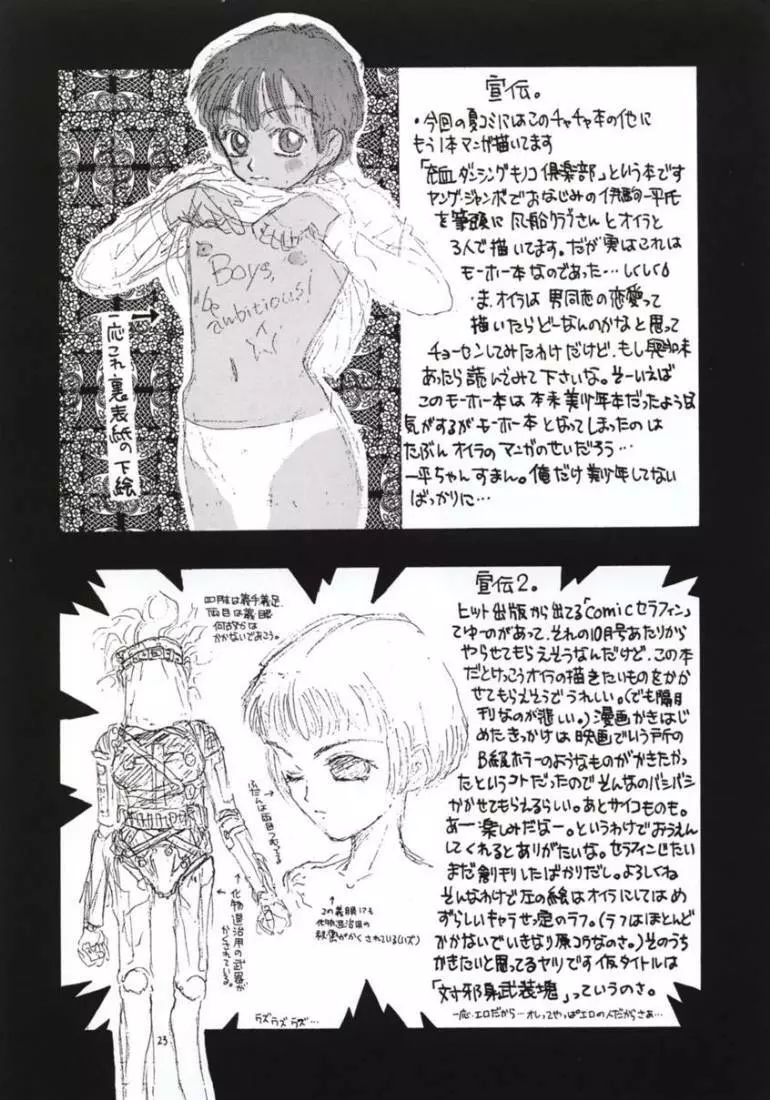 宣伝。
・今回の夏コミにはこのチャチャ本の他に
もう1本マンガ描いてます
「充血ダンシングキノコ倶楽部」という本です
ヤング・ジャンボでおなじみの伊駒一平氏
を筆頭に風船クラブさんとオイラと
3人で描いてます。だが実はこれは
モーホー本なのであった…しくしく
ま、オイラは男同志の恋愛って
描いたらどーなんのかなと思って
チョーセンしてみたわけだけど、もし興味
あったら読んでみて下さいな。そーいえば
このモーホー本は本来美少年本だったような
気がするがモーホー本となってしまったのは
たぶんオイラのマンガのせいだろう…
一平ちゃんすまん。俺だけ美少年してない
ばっかりに…
Boys,
be
ambitious!
一応これ裏表紙の下絵
宣伝2。
ヒット出版から出てる「comicセラフィン」
てゆーのがあって、それの10月号あたりから
やらせてもらえそうなんだけど、この本
だとけっこうオイラの描きたいものをかか
せてもらえそうでうれしい。(でも隔月
刊なのが悲しい。)漫画かきはじ
めたきっかけは映画でいう所の
B級ホラーのようなものががきたかっ
たというコトだったのでそんなのバシバシ
かかせてもらえるらしい。あとサイコものも。
あー楽しみだなー。というわけでおうえん
してくれるとありがたいな。セラフィンじたい
まだ創刊したばかりだし。よろしくね
そんなわけで左の絵はオイラにしてはめ
ずらしいキャラせっ定のラフ。(ラフはほとんど
かかないでいきなり原コウなのさ。)そのうち
かきたいと思ってるヤツです仮タイトルは
「対邪身武装塊」っていうのさ。
一応、エロだから…オレってやっぱエロの人だからさぁ…
四肢は義手義足
両目は義眼
何故かは
かかないであこう。
ふだんは両目つむってる
↑
この義眼にも
化物退治用の
秘密がかくされている(ハズ)
↑
化物退治用の武器が
かくされている。
ラズラズラズ…
23